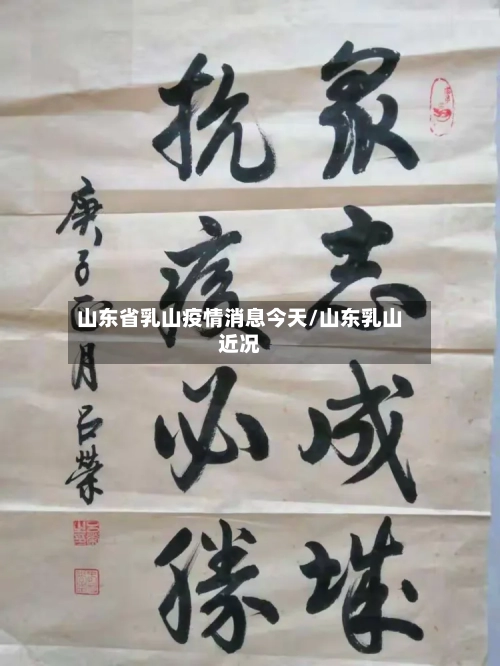 眾志成城
抗疫必勝
庚子正月吕榮
山东省乳山疫情消息今天/山东乳山
近况